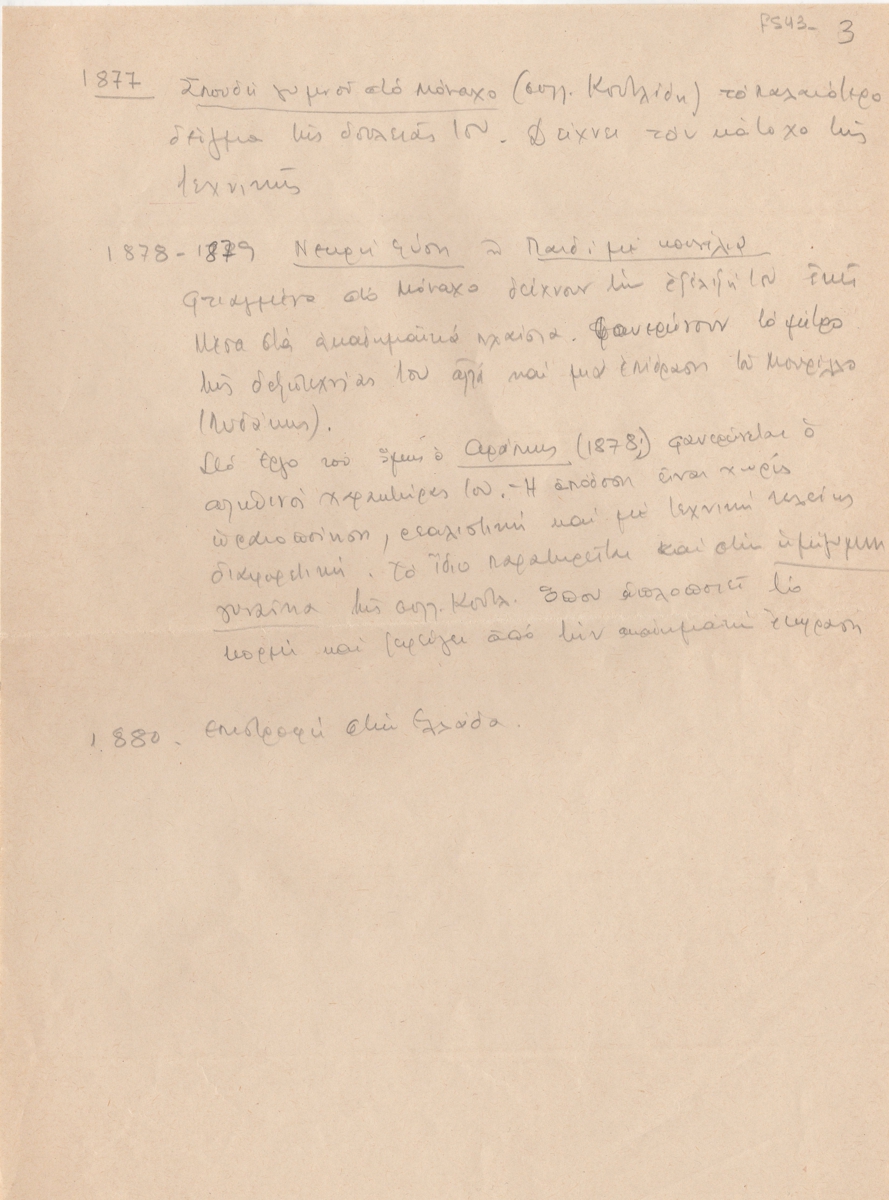 FS43- 3
1877 Σπουδή γυμνοῦ στό Μόναχο (συλλ. Κουτλίδη) τό παλαιότερο
δεῖγμα τῆς δουλειᾶς του. Δείχνει τόν κάτοχο τῆς
τεχνικῆς
1878-1879 Νεκρή φύση Παιδί μέ κουνέλια
Φτιαγμένα στό Μόναχο δείχνουν τήν ἐξέλιξή του ἐκεῖ
μέσα στά ακαδημαϊκά πλαίσια. Φανερώνουν τό μέτρο
τῆς δεξιοτεχνίας του ἀλλά καί μιά ἐπίδραση τοῦ Μουρίλλο
(Λυδάκης).
Στό ἔργο του ὅμως ὁ Αράπης (1878;) φανερώνεται ὁ
αληθινός χαρακτήρας του. - Η απόδοση εἶναι χωρίς
ὡραιοποίηση, ρεαλιστική καί μέ τεχνική τελείως
διαφορετική. Τό ἴδιο παρατηρεῖται καί στήν ἡμίγυμνη
γυναίκα τῆς συλλ. Κουτλ. ὅπου ἁπλοποιεῖ τό
κορμί καί ξεφεύγει ἀπό τήν ακαδημαϊκή ἔκφραση
1880. Επιστροφή στήν Ελλάδα.